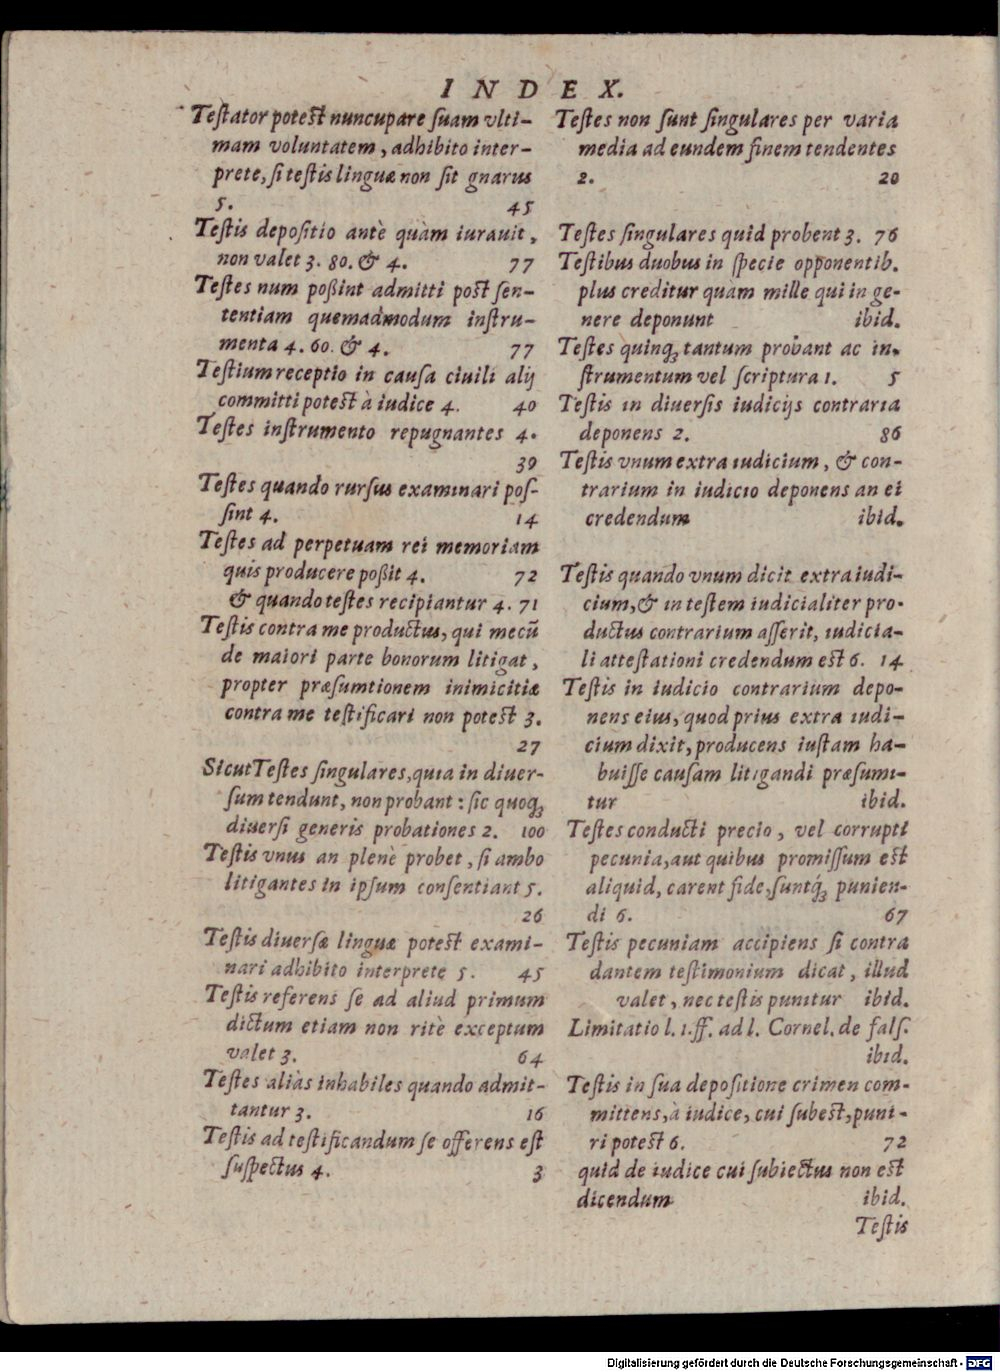 INDEX.
Teſtator poteſt nuncupare ſuam vlti-
mam voluntatem, adhibito inter-
prete, ſi teſtis linguæ non ſit gnarus
5. 45
Teſtis depoſitio antè quàm iurauit,
non valet 3. 80. & 4. 77
Teſtes num poßint admitti poſt ſen-
tentiam quemadmodum inſtru-
menta 4. 60. & 4. 77
Teſtium receptio in cauſa ciuili alij
committi poteſt à iudice 4. 40
Teſtes inſtrumento repugnantes 4.
39
Teſtes quando rurſus examinari poſ-
ſint 4. 14
Teſtes ad perpetuam rei memoriam
quis producere poßit 4. 72
& quando teſtes recipiantur 4. 71
Teſtis contra me productus, qui mecũ
de maiori parte bonorum litigat,
propter præſumtionem inimicitiæ
contra me teſtificari non poteſt 3.
27
Sicut Teſtes ſingulares, quia in diuer-
ſum tendunt, non probant: ſic quoq;
diuerſi generis probationes 2. 100
Teſtis vnus an plenè probet, ſi ambo
litigantes in ipſum conſentiant 5.
26
Teſtis diuerſæ linguæ poteſt exami-
nari adhibito interprete 5. 45
Teſtis referens ſe ad aliud primum
dictum etiam non ritè exceptum
valet 3. 64
Teſtes aliàs inhabiles quando admit-
tantur 3. 16
Teſtis ad teſtificandum ſe offerens eſt
ſuſpectus 4. 3
Teſtes non ſunt ſingulares per varia
media ad eundem finem tendentes
2. 20
Teſtes ſingulares quid probent 3. 76
Teſtibus duobus in ſpecie opponentib.
plus creditur quàm mille qui in ge-
nere deponunt ibid.
Teſtes quinq; tantum probant ac in-
ſtrumentum vel ſcriptura 1. 5
Teſtis in diuerſis iudicijs contraria
deponens 2. 86
Teſtis vnum extra iudicium, & con-
trarium in iudicio deponens an ei
credendum ibid.
Teſtis quando vnum dicit extra iudi-
cium, & in teſtem iudicialiter pro-
ductus contrarium aſſerit, iudicia-
li atteſtationi credendum eſt 6. 14
Teſtis in iudicio contrarium depo-
nens eius, quod prius extra iudi-
cium dixit, producens iuſtam ha-
buiſſe cauſam litigandi præſumi-
tur ibid.
Teſtes conducti precio, vel corrupti
pecunia, aut quibus promiſſum eſt
aliquid, carent fide, ſuntq́; punien-
di 6. 67
Teſtis pecuniam accipiens ſi contra
dantem teſtimonium dicat, illud
valet, nec teſtis punitur ibid.
Limitatio l. 1. ff. ad l. Cornel. de falſ.
ibid.
Teſtis in ſua depoſitione crimen com-
mittens, à iudice, cui ſubeſt, puni-
ri poteſt 6. 72
quid de iudice cui ſubiectus non eſt
dicendum ibid.
Teſtis
Digitalisierung gefördert durch die Deutsche Forschungsgemeinschaft - DFG